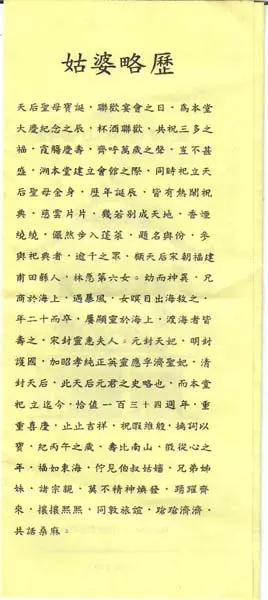 姑婆略歷
天后聖母寶誕，聯歡宴會之日，為本堂
大慶紀念之辰，杯酒聯歡，共祝三多之
福，霞觴慶壽，齊呼萬歲之聲，豈不甚
盛，溯本堂建立會館之際，同時祀立天
后聖母金身，歷年誕辰，皆有熱鬧祝
典，慈雲片片，幾若別成天地，香煙
繞繞，儼然步入蓬萊，題名與份，參
與祀典者，逾千之眾，稽天后宋朝福建
莆田縣人，林愿第六女。幼而神異，兄
商於海上，遇暴風，女瞑目出海救之，
年二十而卒，屢顯靈於海上，渡海者皆
壽之，宋封靈惠夫人。元封天妃，明封
護國，加昭孝純正英靈應孚濟聖妃，清
封天后，此天后元君之史略也，而本堂
祀立迄今，恰值一百三十四週年，重
重喜慶，止止吉祥。祝嘏維殷，摛詞以
賓，紀丙午之歲，壽比南山，徵從心之
年，福如東海，佇見伯叔姑嬸，兄弟姊
妹，諸宗親，莫不精神煥發，踴躍齊
來，攘攘熙熙，同敦旅誼，蹌蹌濟濟，
共話桑麻。